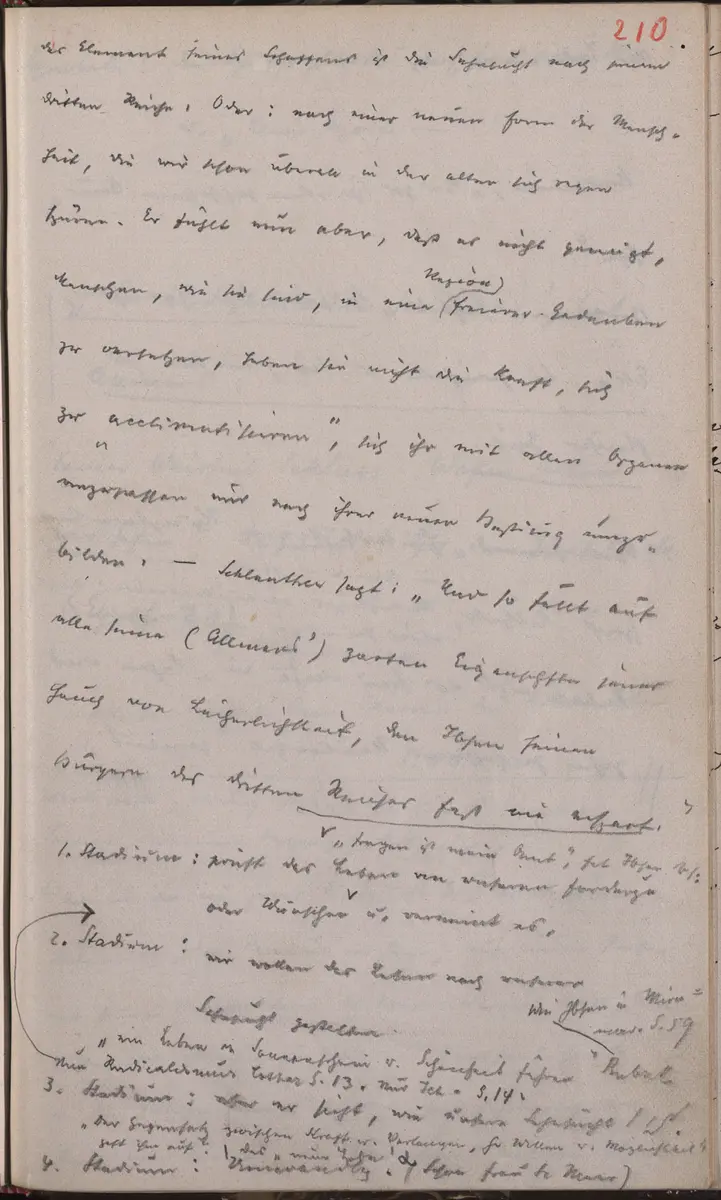 210.
des Element seines Schaffens ist die Sehnsucht nach jenem
dritten Reiche. Oder: nach einer neuen Form der Mensch-
heit, die wir schon überall in der alten sich regen
hören. Er fühlt nun aber, daß es nicht genügt,
Region
Menschen, wie sie sind, in eine freierer Gedanken
zu versetzen, haben sie nicht die Kraft, sich
zu „acclimatisieren", sich ihr mit allen Organen
anzupassen und nach ihrer neuen umzu-
bilden. — Schlenther sagt: „Und so fällt auf
alle seine (Allmers') zarten Eigenschaften jener
Hauch von Lächerlichkeit, den Ibsen seinen
Bürgern des dritten Reiches fast nie erspart."
„Fragen ist mein Amt", hat Ibsen
1. Stadium: prüft das Leben an unseren Forderungen
oder Wünschen u. verneint es.
2. Stadium: wir wollen das Leben nach unserer
Sehnsucht gestalten
wie Ibsen in
S. 59
„ein Leben in Sonnenschein u. Schönheit führen" Rubek
Radicalismus Lothar S. 13. Nur Ich - S. 14.
3. Stadium: aber er sieht, wie unsere Sehnsucht
„Der Gegensatz zwischen Kraft u. Verlangen, zw. Willen u. Möglichkeit"
geht ihm auf:
4. Stadium: Umwandlg. (Schon Frau v. Meer)